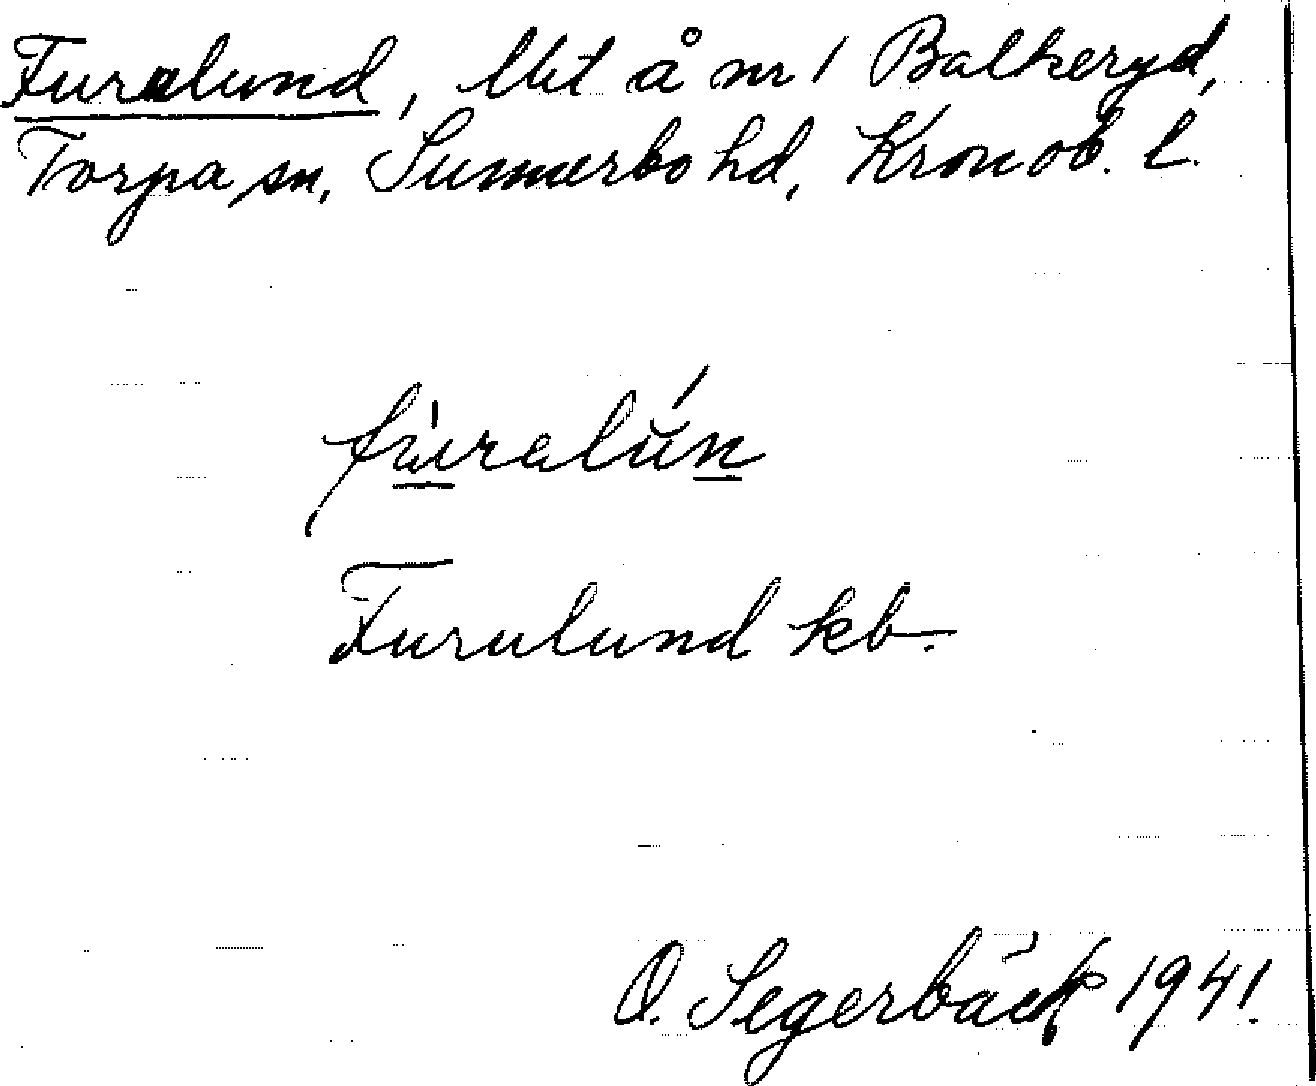 Furalund, Utt å nr 1 Balkeryd,
Torpa sn, Sunnerbo hd, Kronob. l.
fùralún
Furulund kb.
O. Segerbäck 1941.